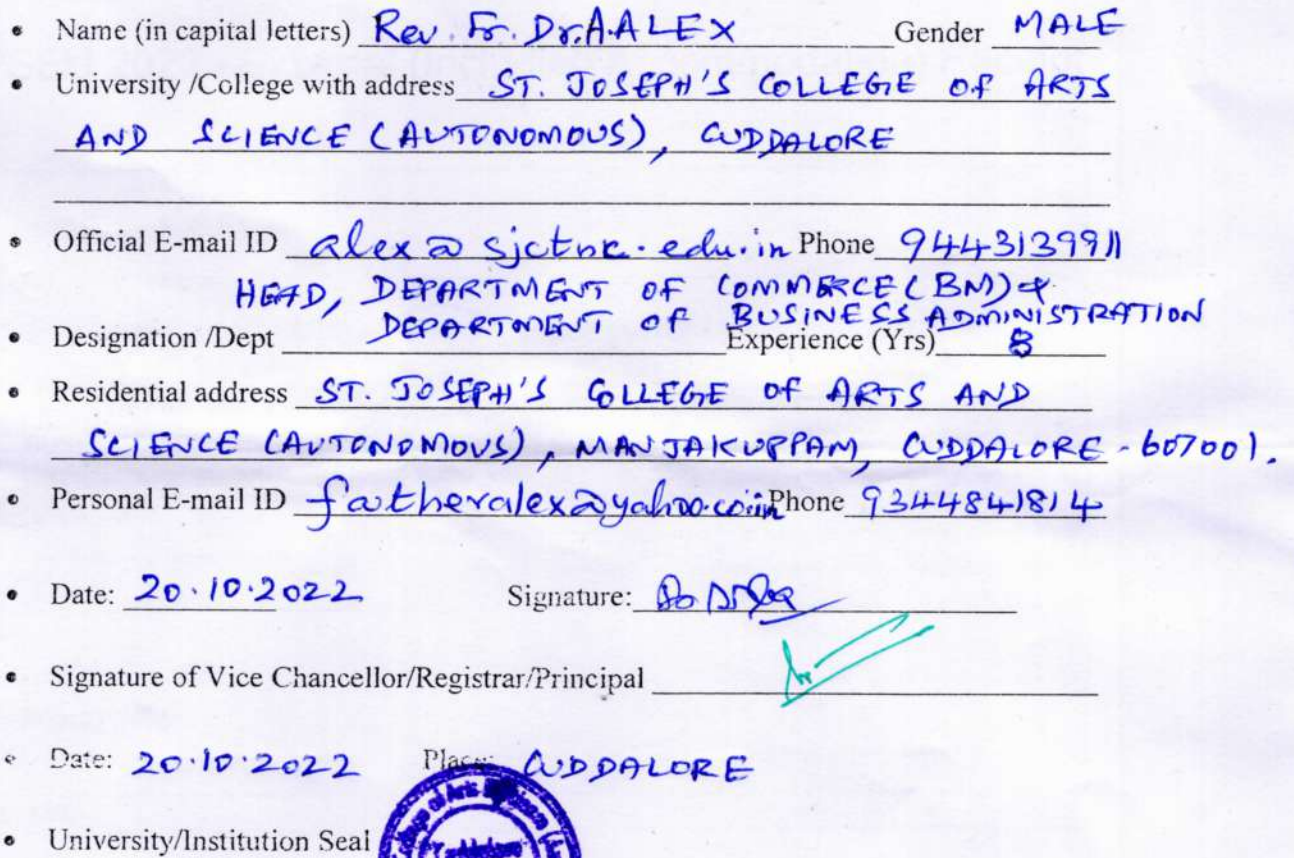 • Name (in capital letters) Rev. Fr. Dr. A. ALEX Gender MALE
• University /College with address ST. JOSEPH'S COLLEGE OF ARTS
AND SCIENCE (AUTONOMOUS), CUDDALORE
• Official E-mail ID alex@sjctnc.edu.in Phone 9443139911
HEAD, DEPARTMENT OF COMMERCE (BM) &
DEPARTMENT OF BUSINESS ADMINISTRATION
• Designation /Dept Experience (Yrs) 8
• Residential address ST. JOSEPH'S COLLEGE OF ARTS AND
SCIENCE (AUTONOMOUS), MANJAKUPPAM, CUDDALORE - 607001.
• Personal E-mail ID fatheralex@yahoo.co.in Phone 9344841814
• Date: 20.10.2022 Signature:
• Signature of Vice Chancellor/Registrar/Principal
• Date: 20.10.2022 Place: CUDDALORE
• University/Institution Seal